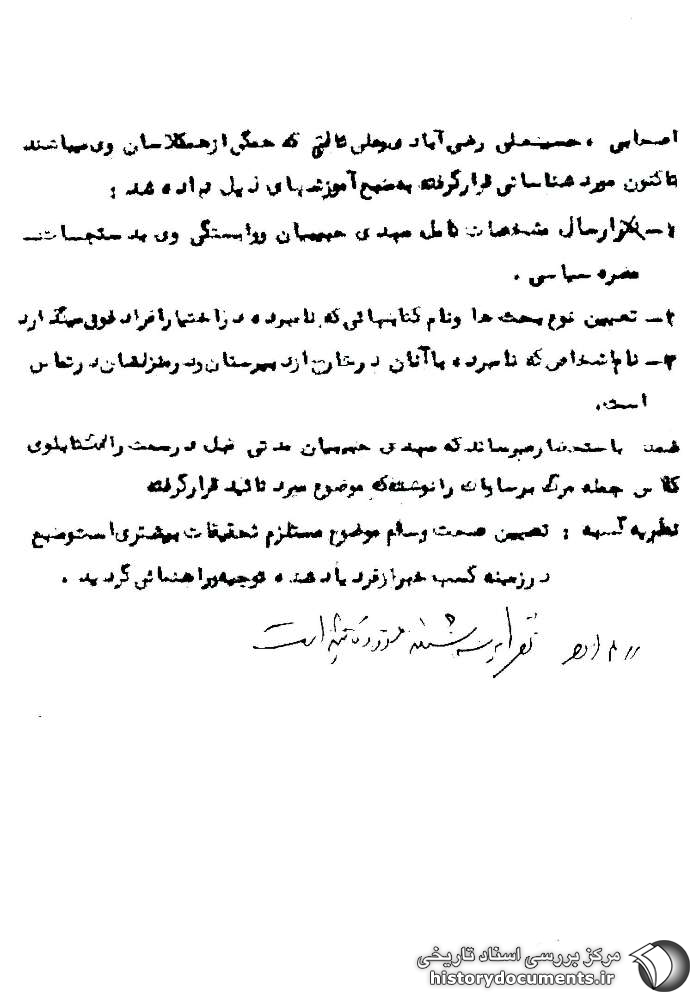 اصحابی ، حسینعلی رضی آبادی وعلی ثالثی که همگی از همکلاسان وی میباشند
تاکنون مورد شناسائی قرار گرفته به منبع آموزشهای ذیل داده شد :
۱ـ ارسال مشخصات کامل مهدی حبیبیان و وابستگی وی به دستجات
مضره سیاسی .
۲ـ تعیین نوع بحث ها ونام کتابهائی که نامبرده در اختیار افراد فوق میگذارد
۳ـ نام اشخاصی که نامبرده با آنان در خارج از دبیرستان ودر منزلشان در تماس
است .
ضمنا باستحضار میرساند که مهدی حبیبیان مدتی قبل در سمت راست تابلوی
کلاس جمله مرگ بر ساواک را نوشته که موضوع مورد تائید قرار گرفته
نظریه : تعیین صحت وسقم موضوع مستلزم تحقیقات بیشتری است و منبع
در زمینه کسب خبر از فرد یاد شده توجیه و راهنمائی گردید .
نظریه شنبه مورد تائید است
مرکز بررسی اسناد تاریخی
historydocuments.ir